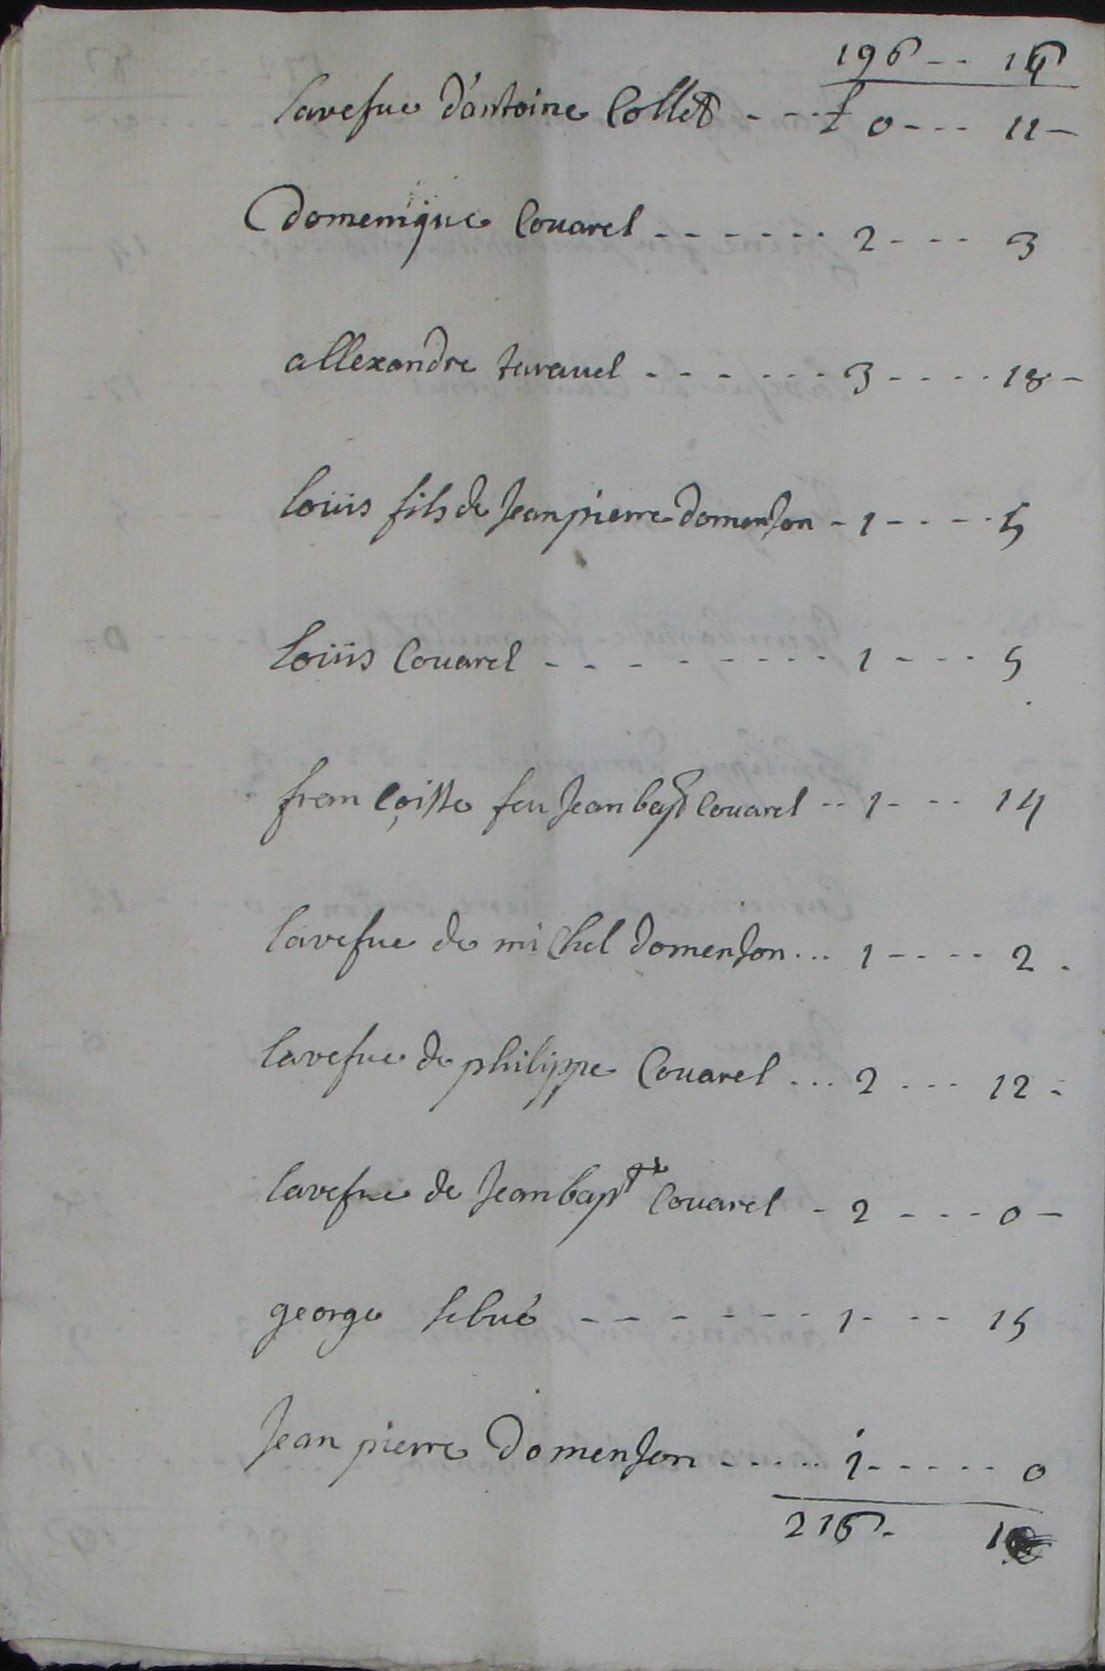 196 -- 16
la vefue d'antoine Collet - - - 0 --- 11 -
domenique Couarel - - - - - - 2 - - - 3
allexandre - - - - - - 3 - - - - 18 -
loüis fils de Jean pierre domenjon - 1 - - - - 5
loüis Couarel - - - - - - - - - 1 - - - 5
francoisse feu Jean bapt Couarel -- 1 - - - 14
la vefue de michel domenjon ... 1 - - - - 2 .
la vefue de philippe Couarel ... 2 - - - 12 -
la vefue de Jean bapte Couarel - 2 - - - 0 -
george - - - - - - - 1 - - - 15
Jean pierre Domenjon - - - - - 1 - - - - - 0
216 - 1